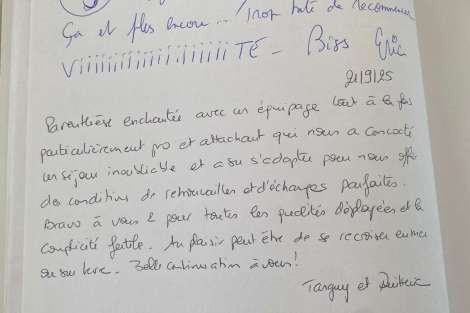 Ça et plus encore... Trop hâte de recommencer
Viiiiiiiiiiiiiiiiii TÉ - Biss Eric
21/9/25
Parenthèse enchantée avec un équipage tout à la fois
particulièrement pro et attachant qui nous a concocté
un séjour inoubliable et a su s'adapter pour nous offrir
des conditions de retrouvailles et d'échanges parfaites.
Bravo à vous 2 pour toutes les qualités déployées et la
complicité fertile. Au plaisir peut être de se recroiser en mer
ou sur terre. Belle continuation à vous!
Tanguy et